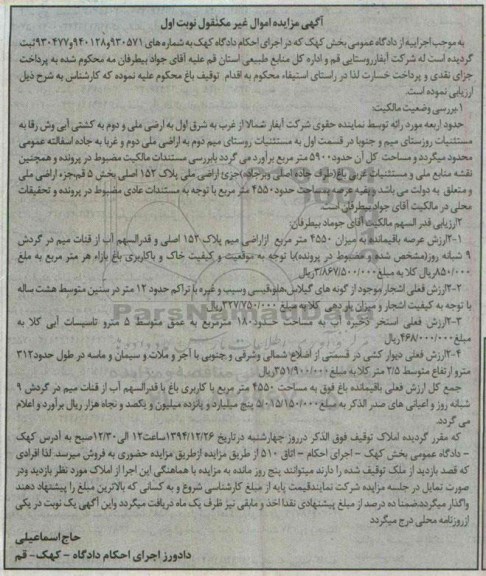 آگهی مزایده اموال غیر منقول نوبت اول
به موجب اجراییه از دادگاه عمومی بخش کهک که در اجرای احکام دادگاه کهک به شماره های ۹۳۰۵۷۱و۹۴۰۱۲۸و۹۳۰۴۷۷ثبت
گردیده است له شرکت آبفارروستایی قم و اداره کل منابع طبیعی استان قم علیه آقای جواد بیطرفان مه محکوم شده به پرداخت
جزای نقدی و پرداخت خسارت لذا در راستای استیفاء محکوم به اقدام توقیف باغ محکوم علیه نموده که کارشناس به شرح ذیل
ارزیابی نموده است.
۱.بررسی وضعیت مالکیت:
حدود اربعه مورد رائه توسط نماینده حقوی شرکت آبفار شمالا از غرب به شرق اول به ارضی ملی و دوم به کشتی آبی وش رقا به
مستثنیات روستای میم و جنوبا در قسمت اول به مستثنیات روستای میم دوم به اراضی ملی دوم و غربا به جاده اسفالته عمومی
محدود میگردد و مساحت کل آن حدود۵۹۰۰ متر مربع برآورد می گردد بابررسی مستندات مالکیت مضبوط در پرونده و همچنین
نقشه منابع ملی و مستثنیات غربی باغ(طرف جاده اصلی ویرجاده)جزئ اراضی ملی پلاک ۱۵۲ اصلی بخش ۵ قم‌جزء اراضی ملی
و متعلق به دولت می باشد و بقیه عرصه به مساحت حدود۴۵۵۰ متر مربع با توجه به مستندات عادی مضبوط در پرونده و تحقیقات
محلی در مالکیت آقای جواد بیطرفان است.
۲ارزیابی قدر السهم مالکیت آقای جوماد بیطرفان:
۱-۲ارزش عرصه باقیمانده به میزان ۴۵۵۰ متر مربع ازاراضی میم پلاک ۱۵۲ اصلی و قدرالسهم آب از قنات میم در گردش
۹ شبانه روز(مشخص شده و مضبوط در پرونده)با توجه به موقعیت و کیفیت خاک و باکاربری باغ بازاء هر متر مربع به مبلغ
۸۵۰/۰۰۰ریال کلا به مبلغ۳/۸۶۷/۵۰۰/۰۰۰ریال
۲-۲ارزش فعلی اشجار موجود از گونه های گیلاس،هلو،قیسی وسیب و غیره با تراکم حدود ۱۲ متر در سنین متوسط هشت ساله
با توجه به کیفیت اشجار و میزان بار دهی کلا به مبلغ ۳۲۷/۷۵۰/۰۰۰ریال
۳-۲ارزش فعلی استخر ذخیره آب به مساحت حدود۱۸۰ مترمربع به عمق متوسط ۵ مترو تاسیسات آبی کلا به
مبلغ۴۶۸/۰۰۰/۰۰۰ریال
۴-۲ارزش فعلی دیوار کشی در قسمتی از اضلاع شمالی وشرقی و جنوبی با آجر و ملات و سیمان و ماسه در طول حدود۳۱۲
مترو ارتفاع متوسط ۲/۵ متر کلا به مبلغ۳۵۱/۹۰۰/۰۰۰ریال
جمع کل ارزش فعلی باقیمانده باغ فوق به مساحت ۴۵۵۰ متر مربع با کاربری باغ با قدرالسهم آب از قنات میم در گردش ۹
شبانه روز و اعیانی های صدر الذکر به مبلغ۵/۰۱۵/۱۵۰/۰۰۰ پنج میلیارد و پانزده میلیون و یکصد و نجاه هزار ریال برآورد و اعلام
می گردد.
که مقرر گردیده املاک توقیف فوق الذکر درروز چهارشنبه درتاریخ ۱۳۹۴/۱۲/۲۶ساعت۱۲ الی۱۲/۳۰صبح به آدرس کهک
- دادگاه عمومی بخش کهک - اجرای احکام - اتاق ۵۱۰ از طریق مزایده ازطریق مزایده حضوری به فروش میرسد. لذا افرادی
که قصد بازدید از ملک توقیف شده را دارند میتوانند پنج روز مانده به مزایده با هماهنگی این اجرا از املاک مورد نظر بازدید ودر
صورت تمایل در جلسه مزایده شرکت نمایندقیمت پایه از مبلغ کارشناسی شروع و به کسانی که بالاترین مبلغ را پیشنهاد دهند
واگذار میگرددضمنا ده درصد از مبلغ پیشنهادی نقدا اخذ و مابقی نیز ظرف یک ماه دریافت میگردد واین آگهی یک نوبت در یکی
ازروزنامه محلی درج میگردد
حاج اسماعیلی
دادورز اجرای احکام دادگاه - کهک- قم
ParsNamadData